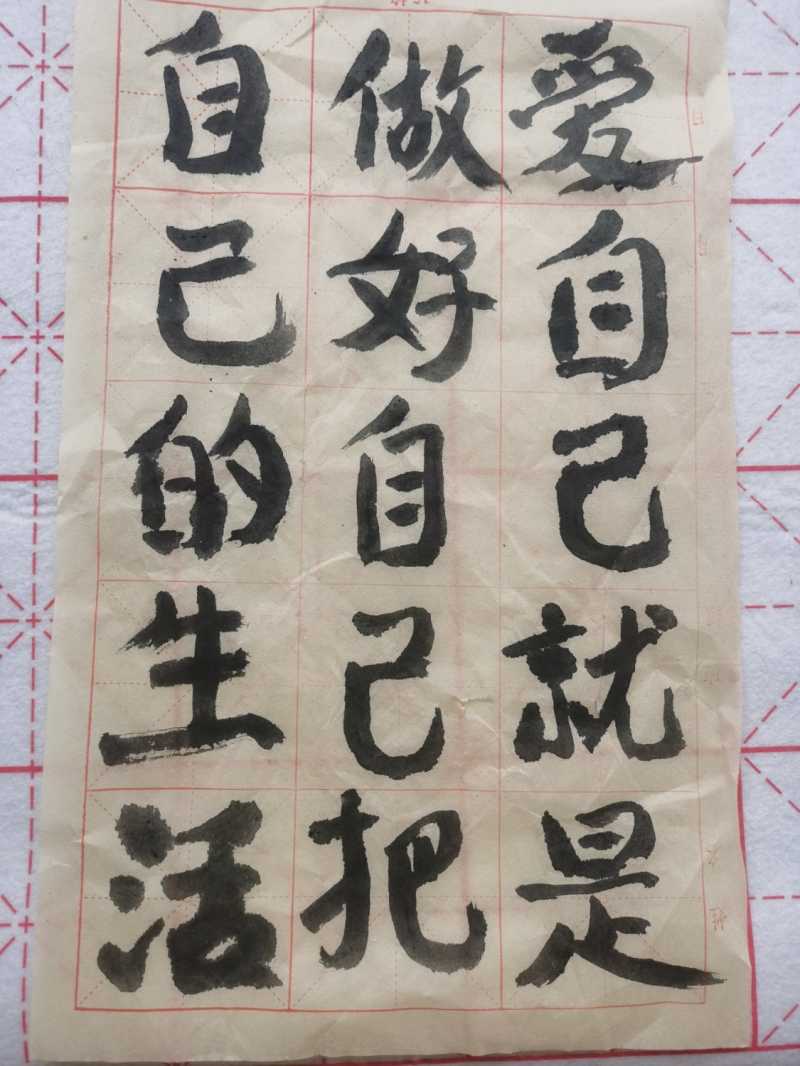 爱自己就是
做好自己把
自己的生活